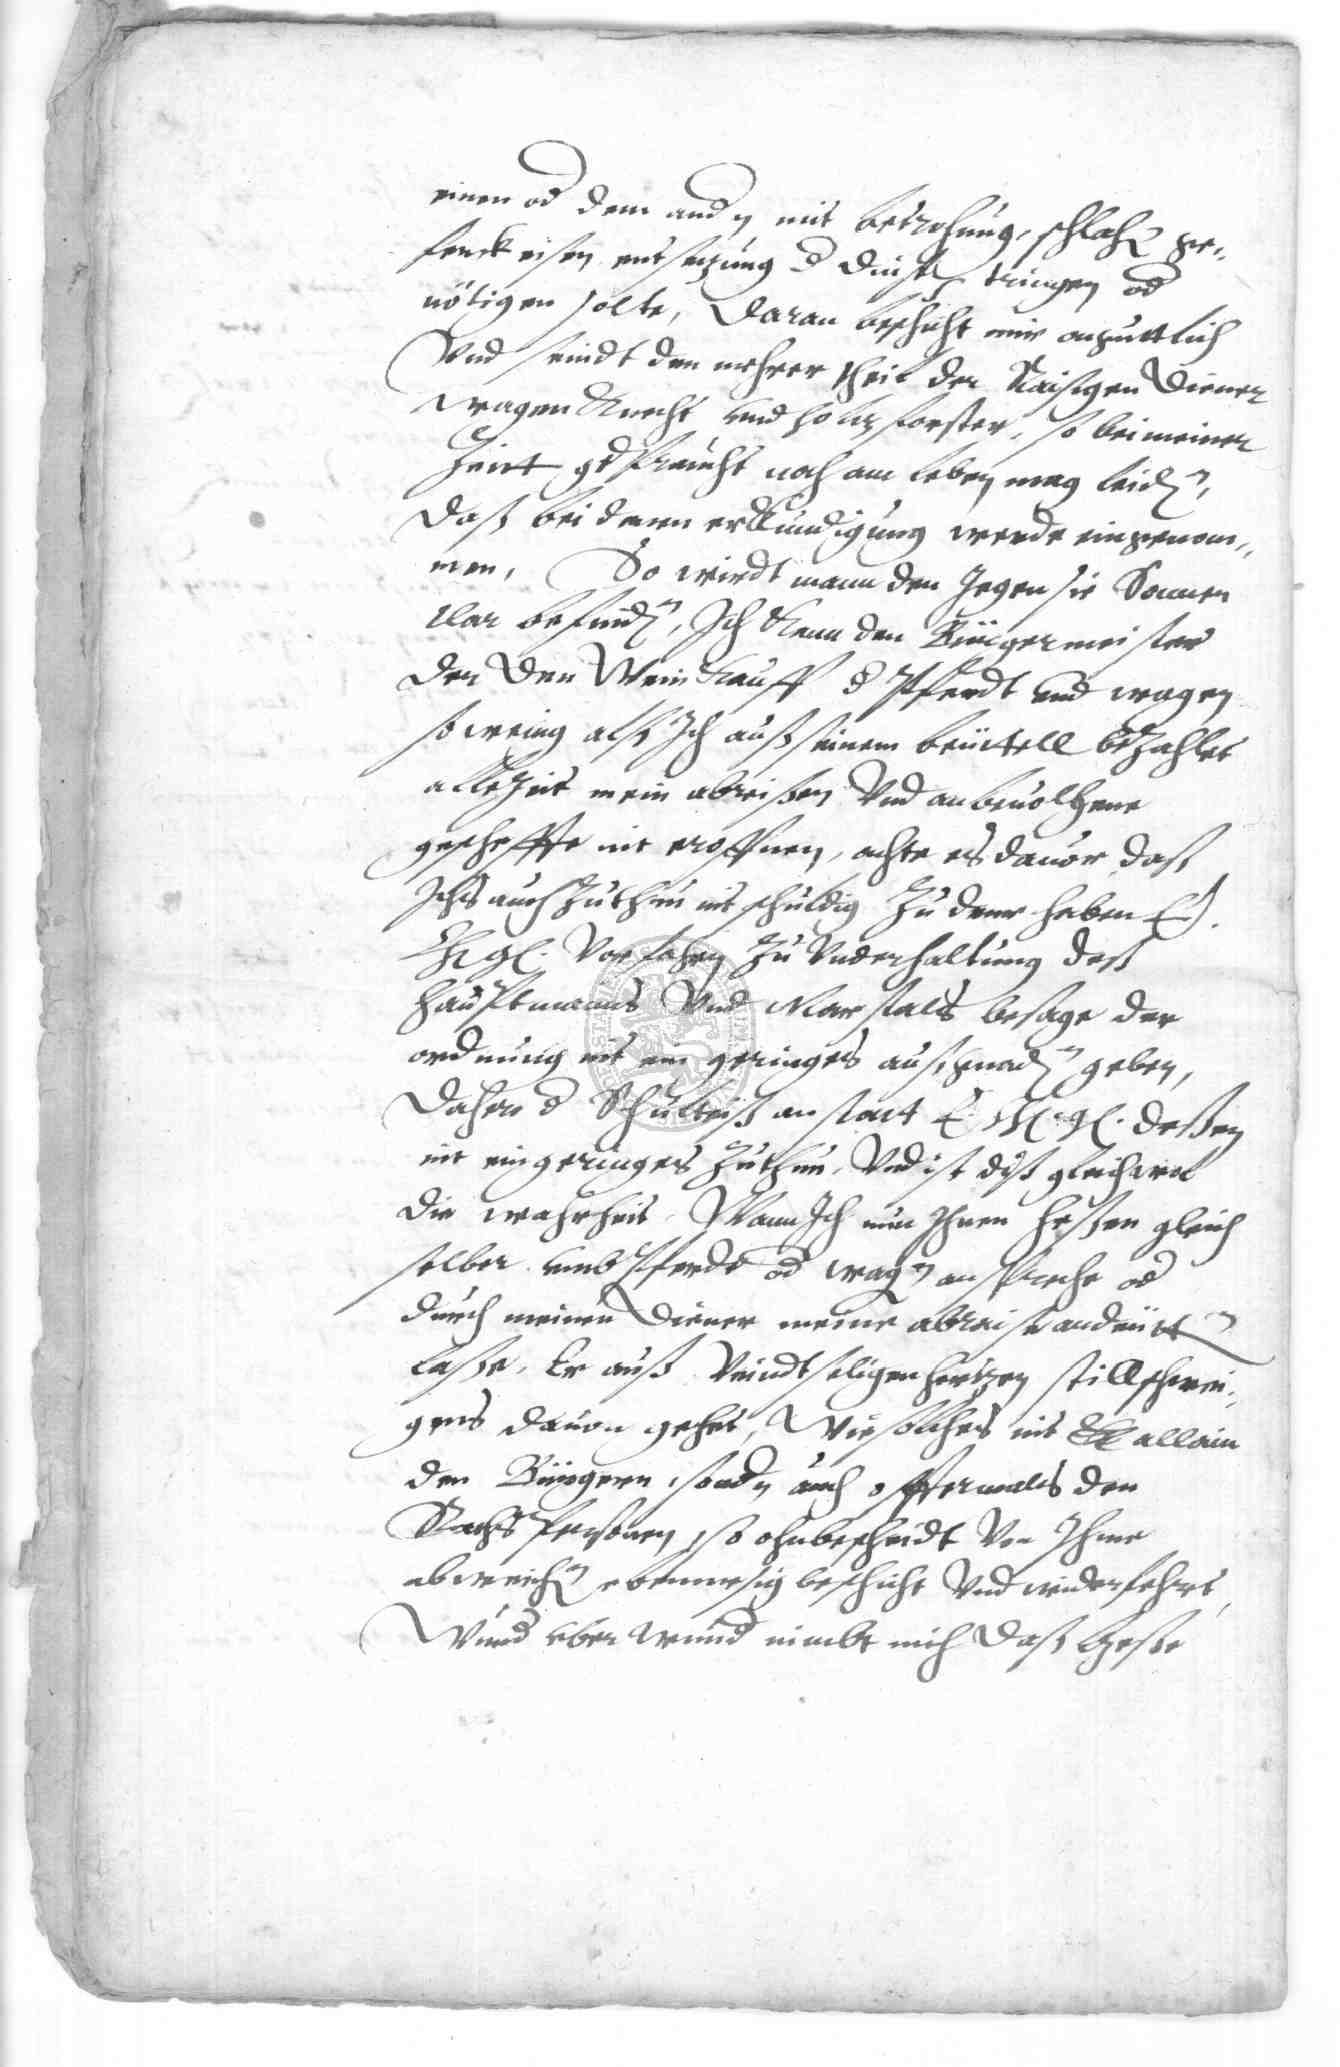 einen od dem andn mit betrohung, schlahen ge¬
fenckeisen entsezung d dinsts tringen od
nötigen solte, Daran beschicht mir onguttlich
Vnd seindt den mehrer theil der Raisigen Diener
wagen Knecht vnd holtzforster, so bei meiner
Zeit gebraucht noch am leben mag leiden,
daß bei denen erkundigung werde eingenom¬
men, So wirdt mann den gegen sie Sonnen
clar befinden, Ich kenn den Bürgermeister
der den Weinkauff d Pferdt vnd wagen
so wenig alß Ich auß seinem beüttell bezahlet
allezeit mein abreißen Vnd anbeuolhene
gescheffte nit eroffnen, achte es dauor daß
Ichs auch zuthun nit schuldig Zu deme haben E.
Vorfahren Zu Vnderhaltung deß
Hauptmanns Vnd Marstals besage der
ordnung nit ein geringes auß gnaden geben,
Daher d Schulteiß an statt E. deßen
nit ein geringes zuthun, Vnd ist diß gleichwol
die warheit, Wann Ich nun Ihnen Heßen gleich
selber vmb Pferde od wagen anspreche od
durch meinen Diener meine abreise andeüten
laße, Er auß Veindtseligen hertzen stillschwei¬
gens dauon gehet, Wie solches nit allain
den Bürgern, sondn auch offtermals den
Raths Personen, so ohnbescheidt Von Ihme
abweichen ebenmesig beschicht Vnd widerfehret,
Wund vber Wund nimbt mich daß Heße